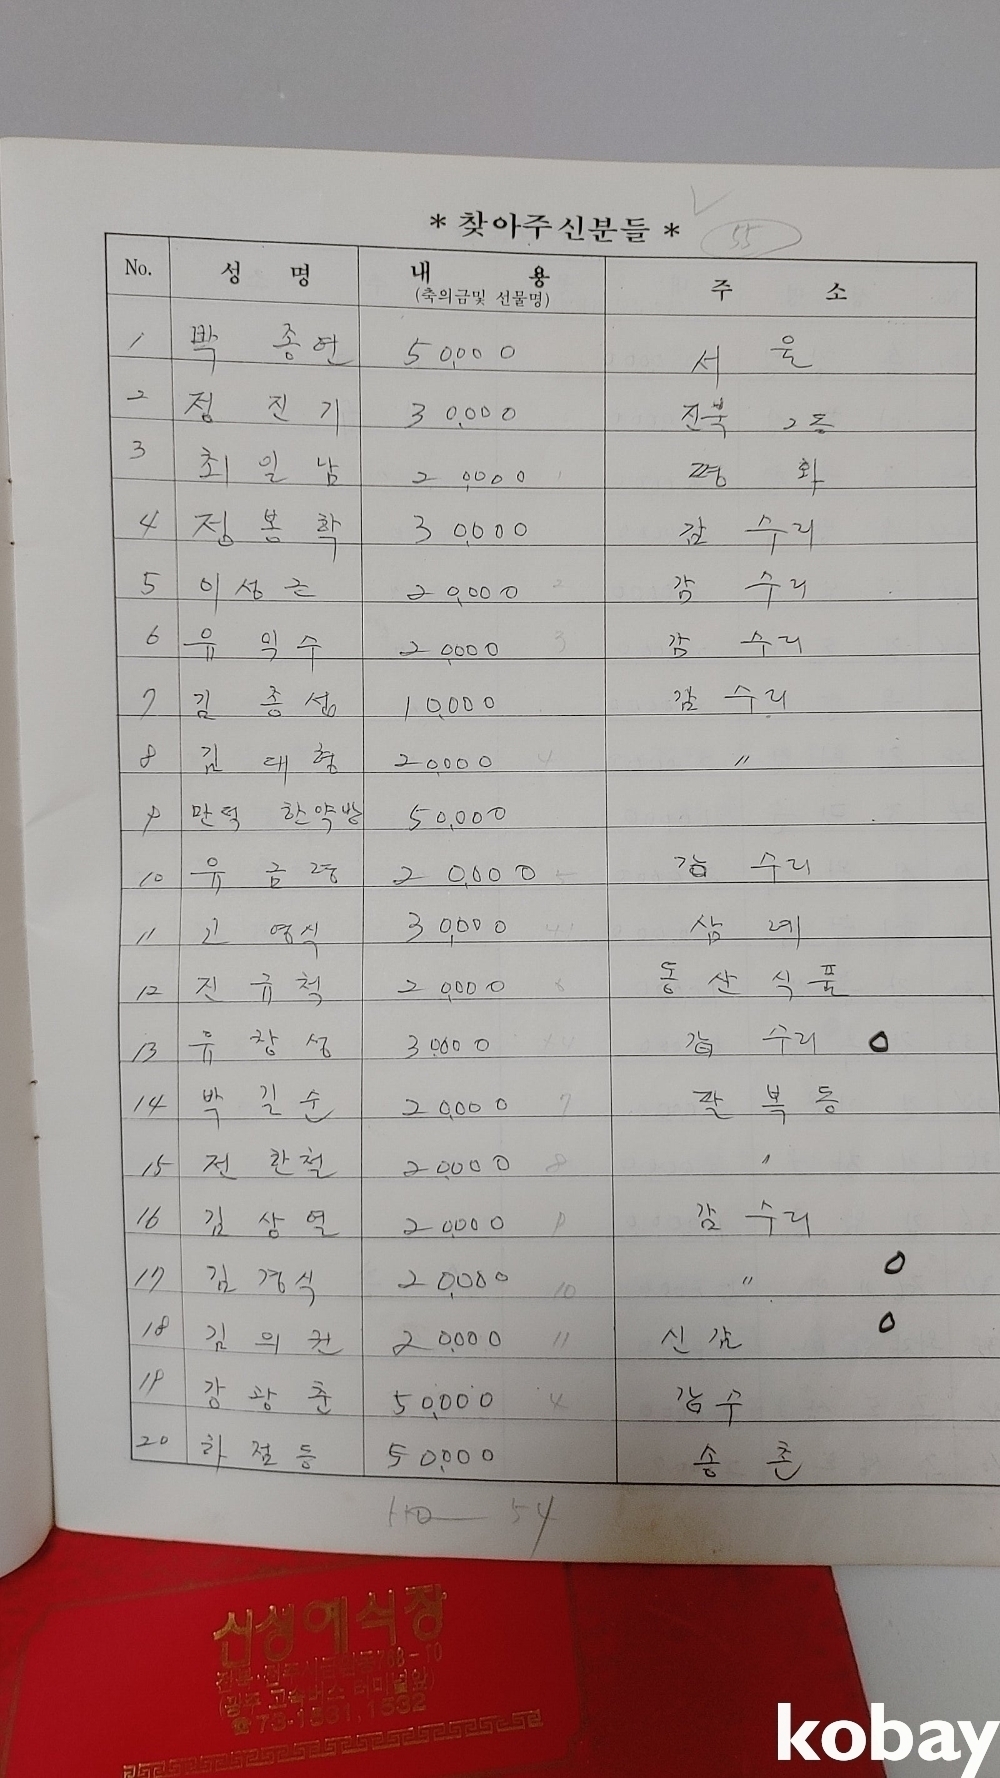 * 찾아주신분들 *
55
No. 성 명 내 용 주 소
(축의금및 선물명)
1 박 종연 50,000 서 울
2 정 진 기 30,000 진북 2동
3 최 일 남 20,000 평 화
4 정 봉 학 30,000 감 수리
5 이 성 근 20,000 2 감 수리
6 유 익 수 20,000 3 감 수리
7 김 종 섭 10,000 감 수리
8 김 대 형 20,000 4 〃
9 만덕 한약방 50,000
10 유 금 20,000 5 감 수리
11 고 영식 30,000 삼 례
12 진 규 척 20,000 동 산 식 품
13 유 창 성 30,000 감 수리 0
14 박 길 순 20,000 7 팔 복 동
15 전 환 철 20,000 8 〃
16 김 상 열 20,000 9 감 수리
17 김 경 식 20,000 10 〃 0
18 김 의 권 20,000 11 신 감 0
19 강 광 춘 50,000 4 감 수
20 하 점 등 50,000 송 촌
54
신생예식장
(광주 고속버스 터미널앞)
☎ 75-1531, 1532
kobay